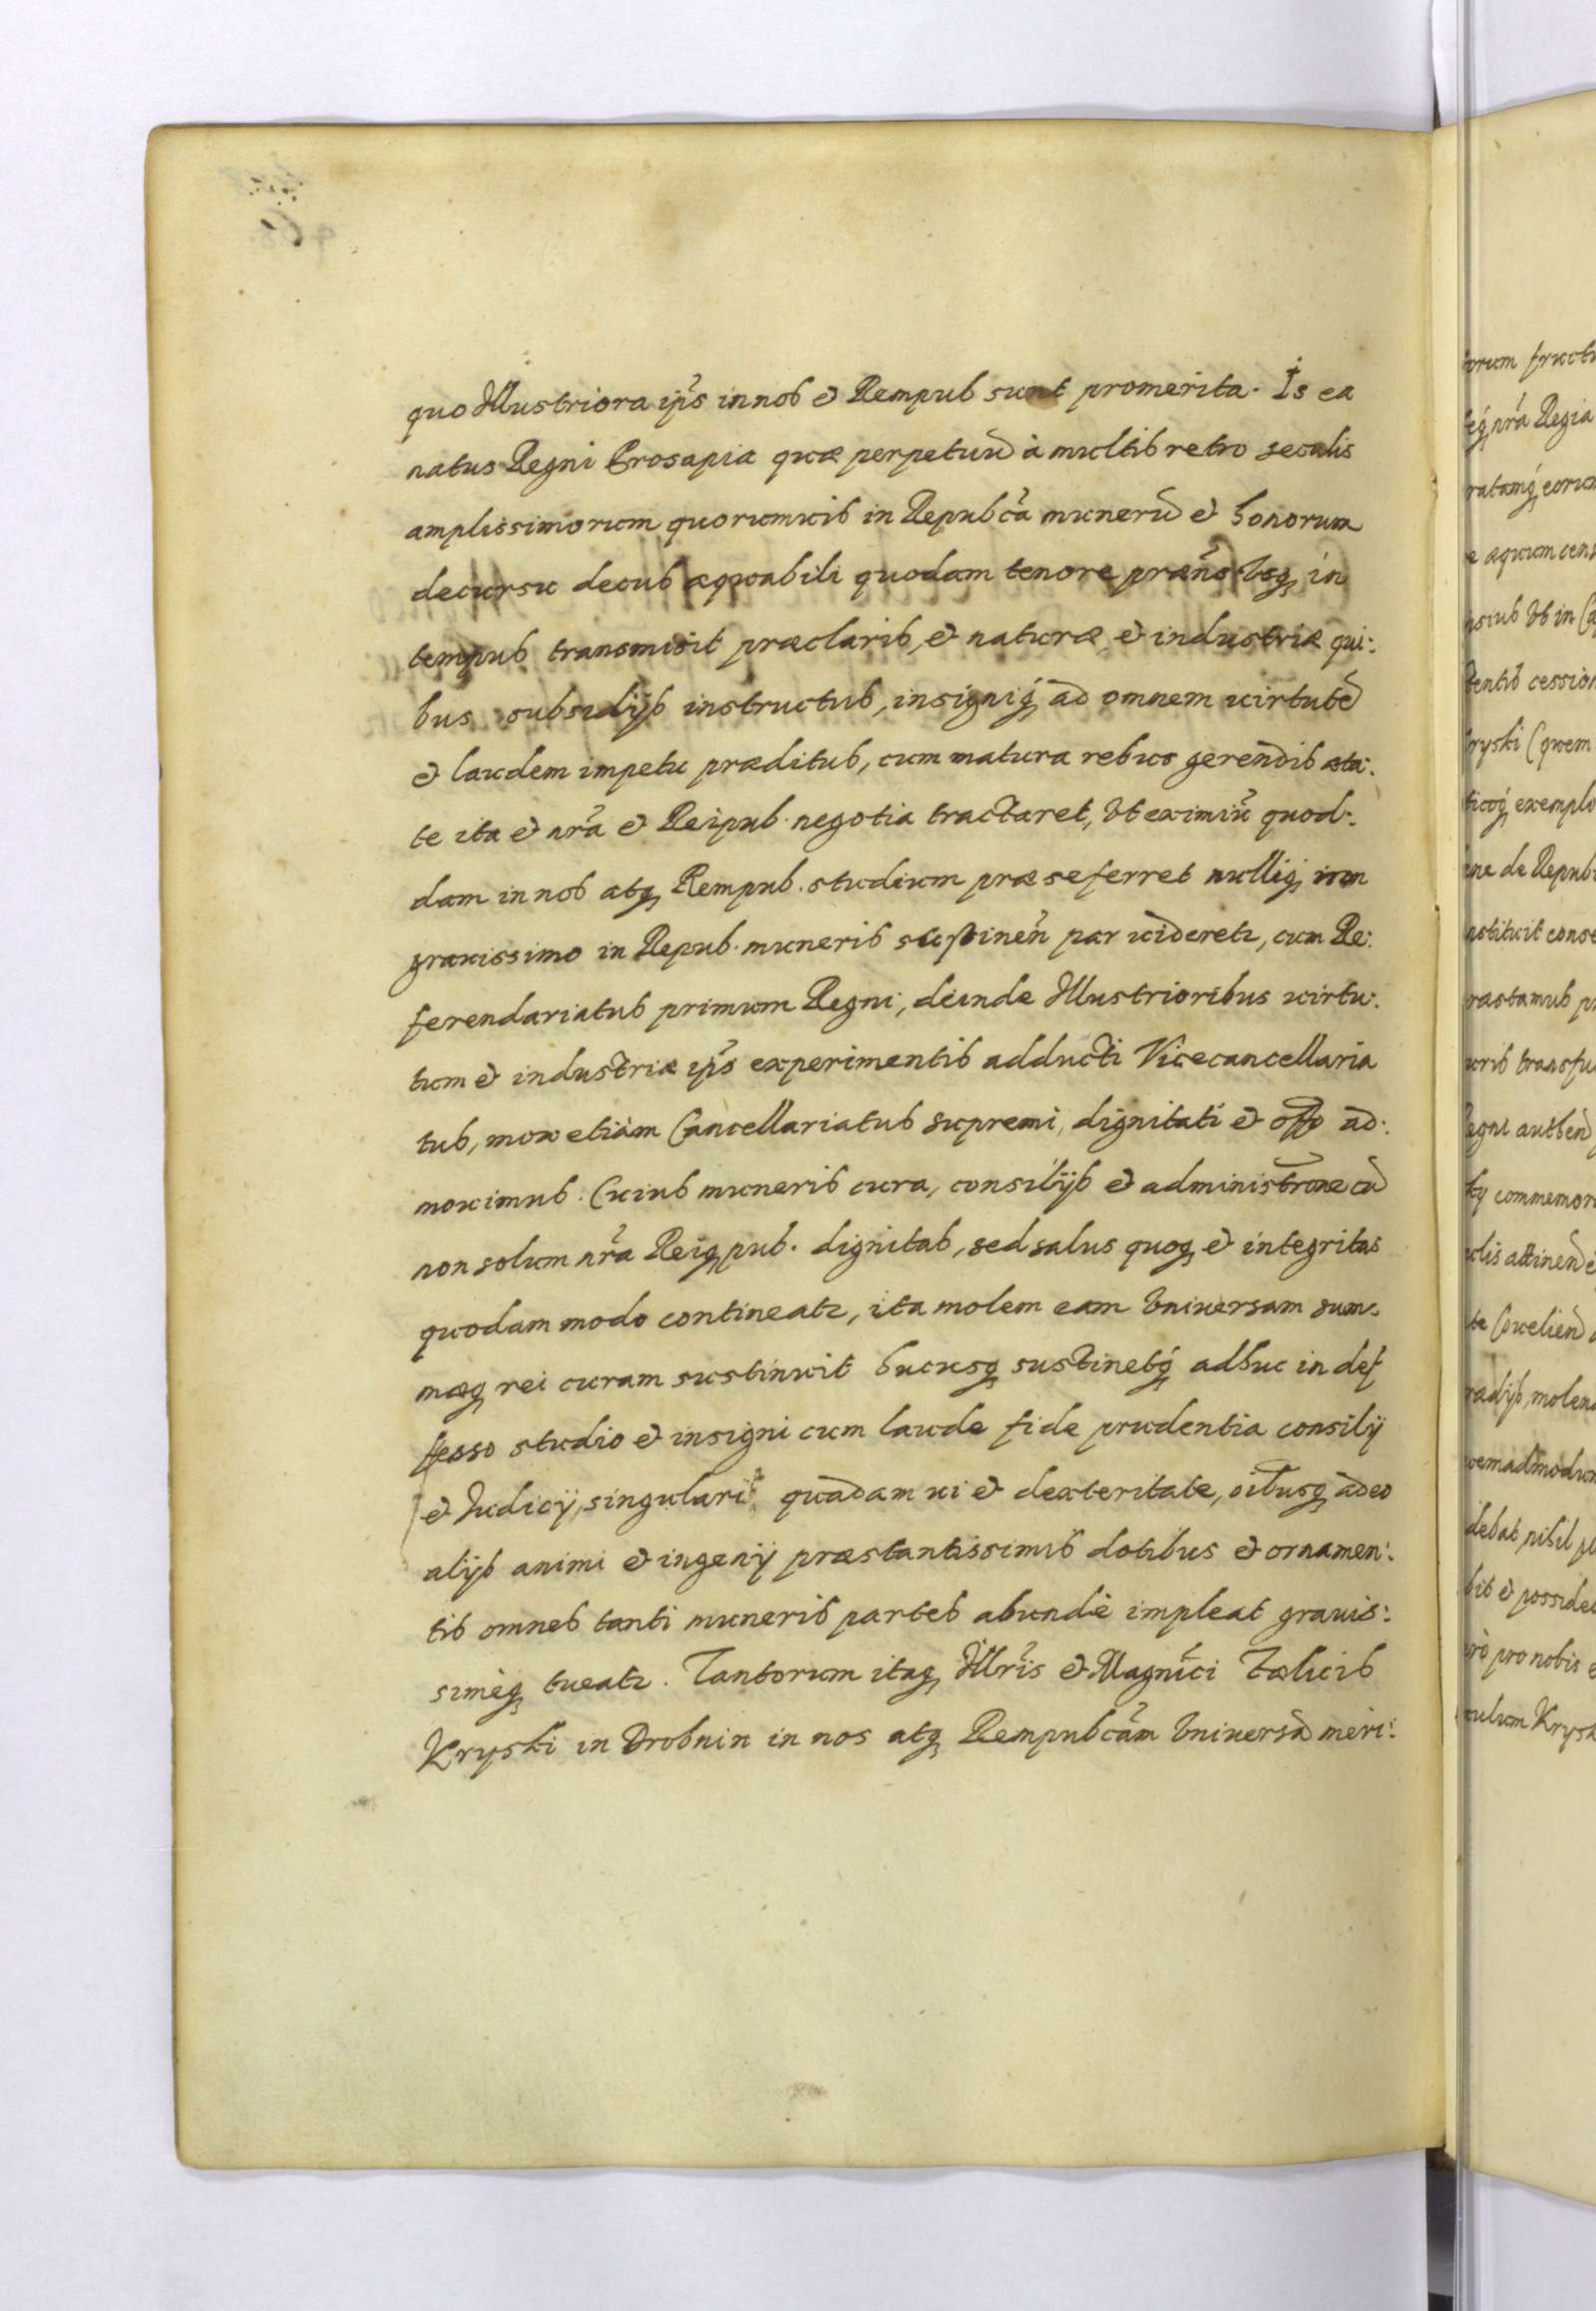 quo Illustriora ip̃s in nos et Rempub sunt promerita. Is ea
natus Regni Prosapia quæ perpetuũ à multis retro seculis
amplissimorum quorumuis in Repubcã munerũ et honorum
decursu decus æquabili quodam tenore præñs vsq in
tempus transmisit præclaris, et naturæ et industriæ qui:
bus subsidijs instructus, insigniq ad omnem uirtutẽ
et laudem impetu præditus, cum matura rebus gerendis æta:
te ita et nrã et Reipub. negotia tractaret, vt eximiũ quod:
dam in nos atq Rempub. studium præ se ferret nulliq non
grauissimo in Repub. muneris sustineñ par uideretr, cum Re:
ferendariatus primum Regni, deinde Illustrioribus uirtu:
tum et industriæ ip̃s experimentis adducti Vicecancellaria
tus, mox etiam Cancellariatus supremi, dignitati et offo ad:
mouimus. Cuius muneris cura, consilijs et administrone cũ
non solum nrã Reiqpub. dignitas, sed salus quoq et integritas
quodam modo contineatr, ita molem eam vniuersam sum:
mæq rei curam sustinuit hucusq sustinetq adhuc in def
fesso studio et insigni cum laude fide prudentia consilij
et Iudicij, singulari quadam ui et dexteritate, oibusq adeo
alijs animi et ingenij præstantissimis dotibus et ornamen:
tis omnes tanti muneris partes abundè impleat grauis:
simèq tueatr. Tantorum itaq Illris et Magnĩci Fælicis
Kryski in Drobnin in nos atq Rempubcãm vniuersã meri:
orum fructu
eq nrã Regia
ratamq eorum
e æquum cens
vt in
cession
ryski (quem
ticoq exemplo
ne de Repub
nstituit conse
rastamus
uris transfu
egni authen
commemor
attinen
radijs, molen
uemadmodum
debat, nihil
bit et posside
pro nobis e
culum Krysk